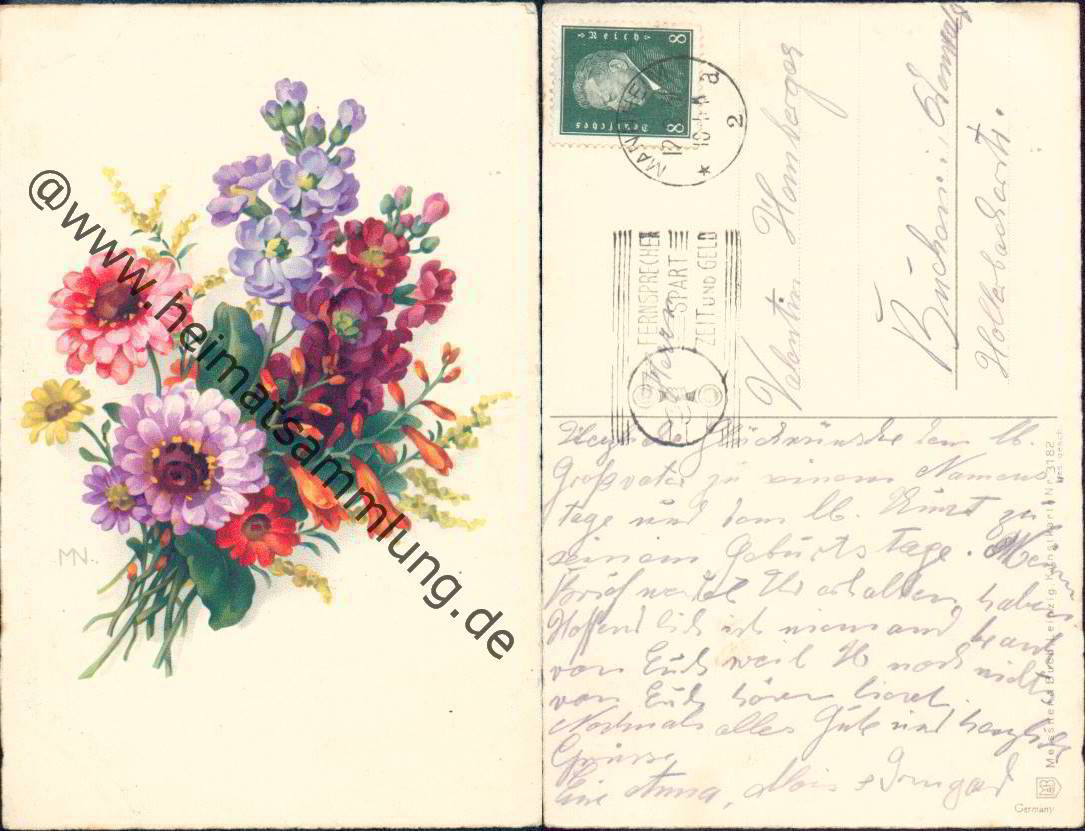 @www.heimatsammlung.de
MN.
Deutsches
Reich
8
8
MANNHEIM
2
a
FERNSPRECHER
SPART
ZEIT UND GELD
Herrn
Valentin Hamberger
Buchen i. Odenwald
Hollerbacherstr.
Herzliche Glückwünsche dem lb.
Großvater zu seinem Namens
tage und dem lb. Kunz zu
seinem Geburtstage.
Brief werdet Ihr erhalten haben
Hoffentlich ist niemand krank
von Euch weil Ihr noch nichts
von Euch hören lieset.
Nochmals alles Gute und herzliche
Grüsse
Eure Anna, Alois + Irmgard
Meissner & Buch, Leipzig Künstlerkarte Nr. 3182
Ges. gesch.
Germany